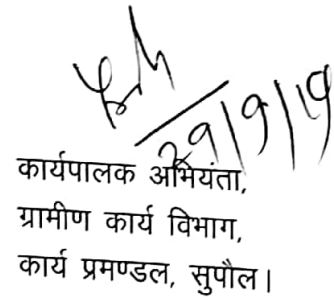 29/9/19
कार्यपालक अभियंता,
ग्रामीण कार्य विभाग,
कार्य प्रमण्डल, सुपौल।